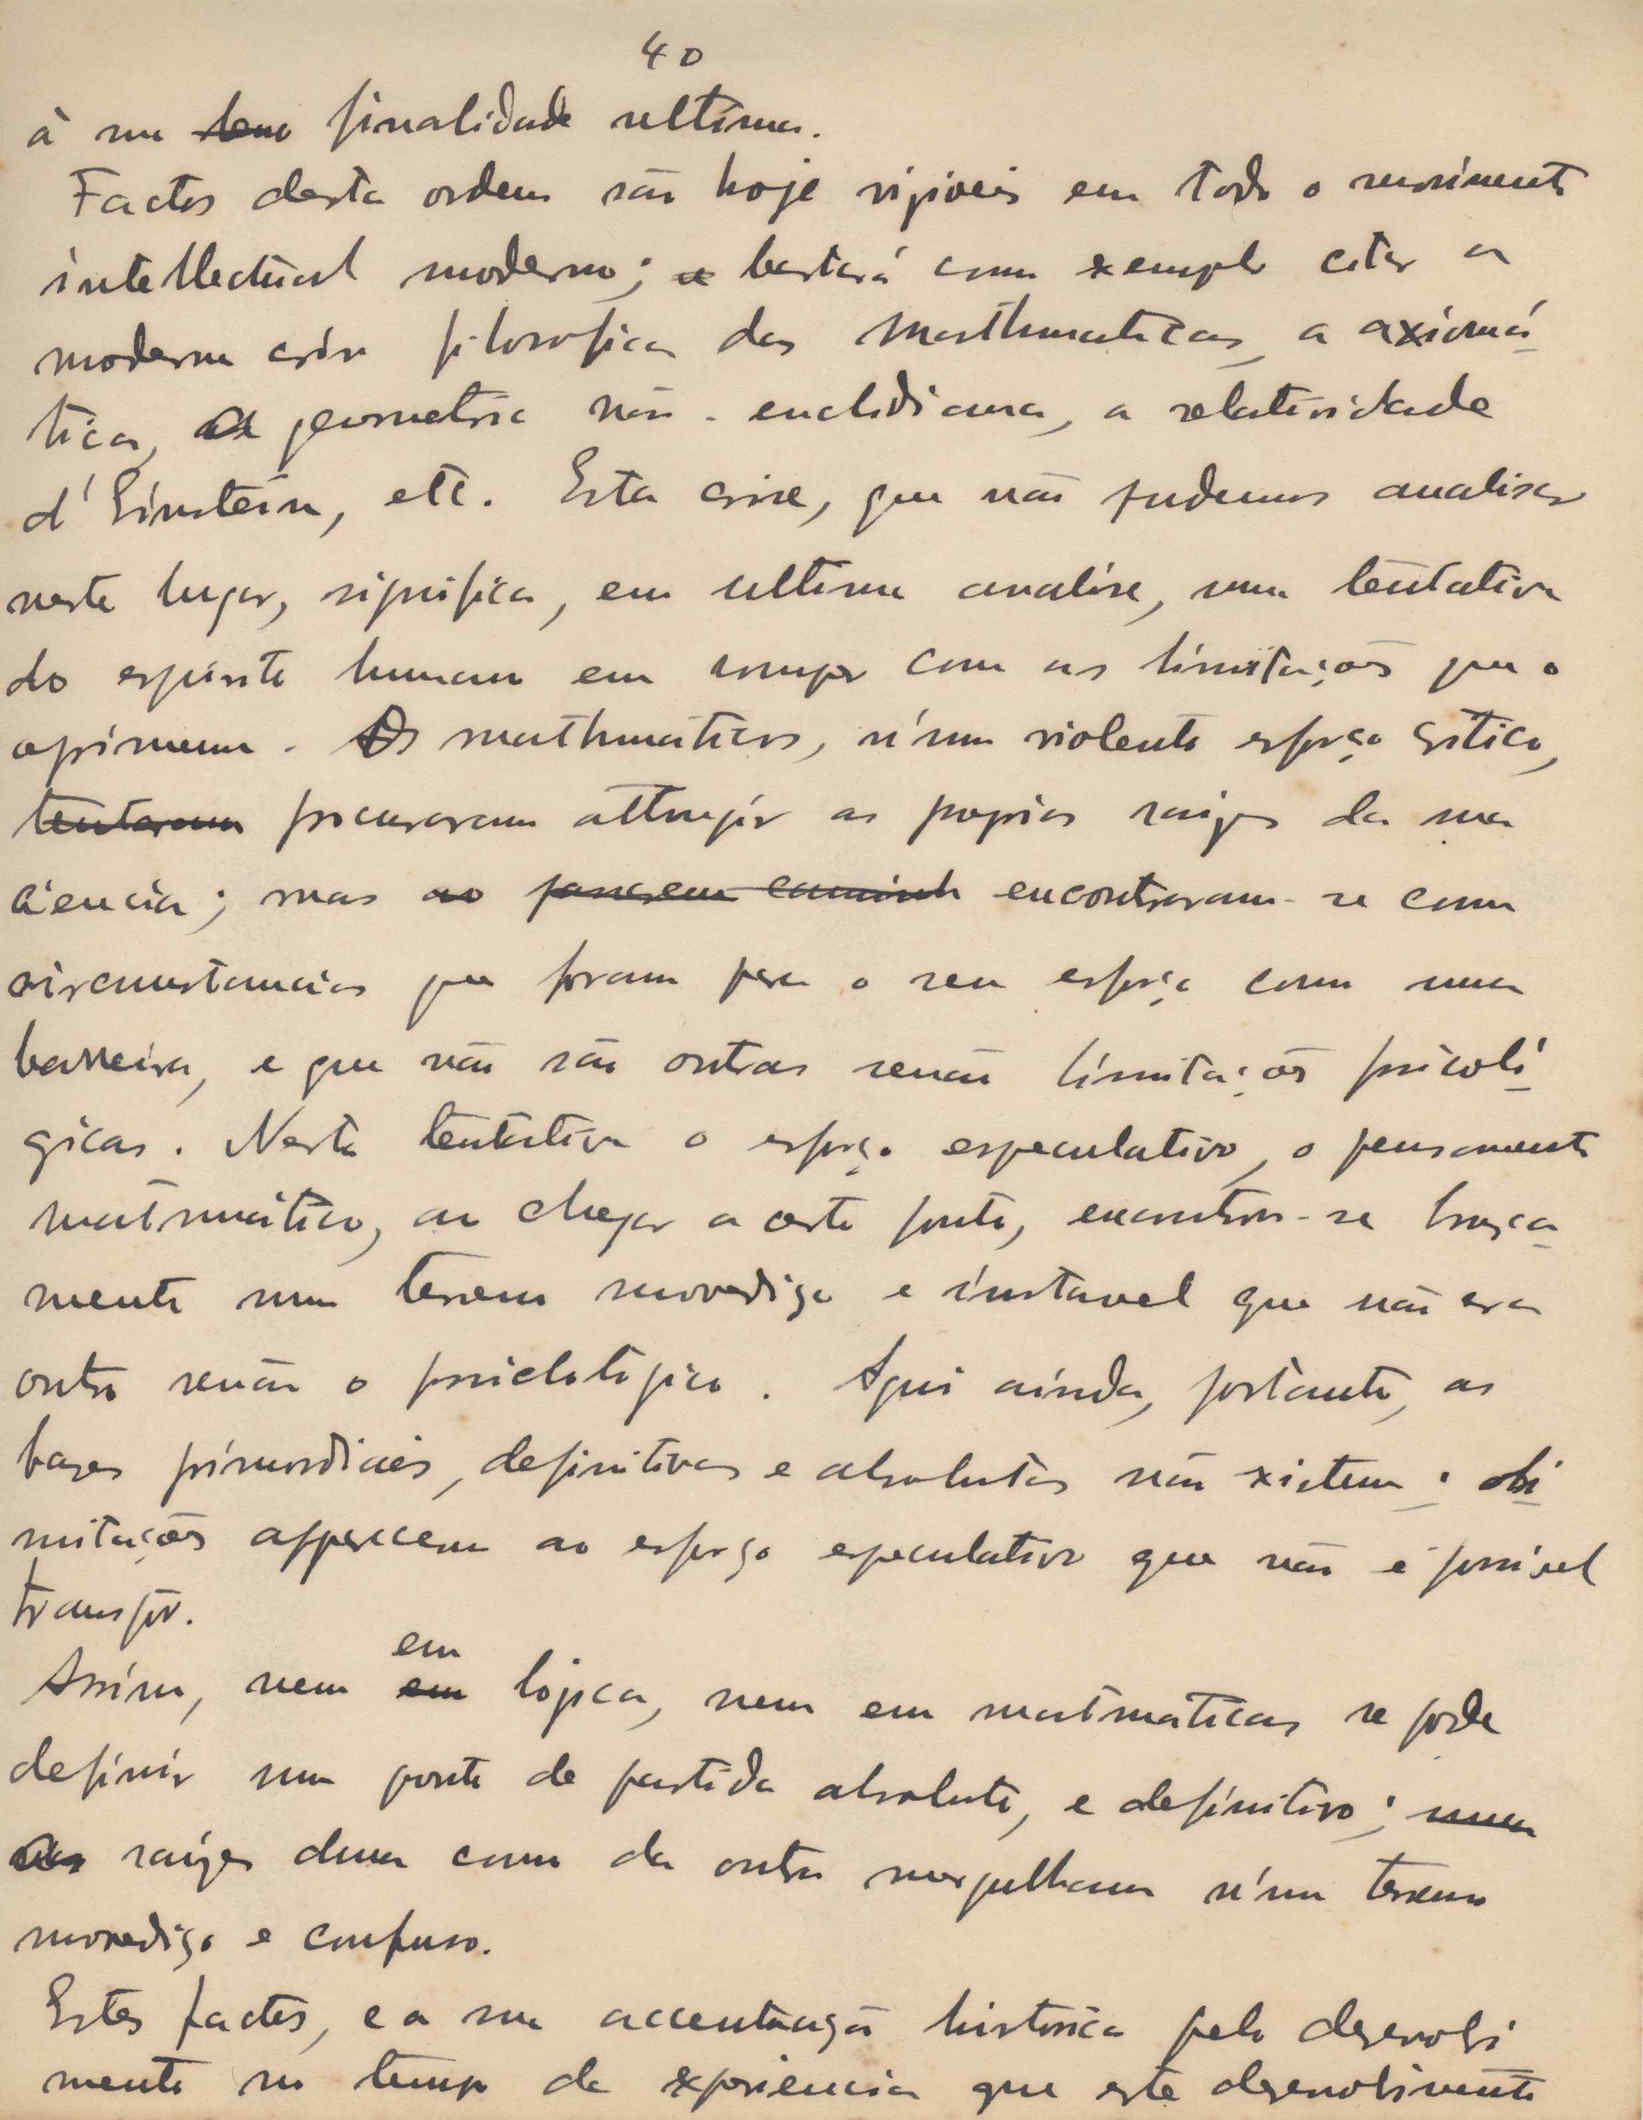 40
à sua bem finalidade ultima.
Factos desta ordem são hoje visiveis em todo o movimento
intellectual moderno; e bastará como exemplo citar a
moderna crise filosofica das mathematicas, a axiomá-
tica, a geometria não-euclidiana, a relatividade
d'Einstein, etc. Esta crise, que não podemos analisar
neste lugar, significa, em ultima analise, uma tentativa
do espirito humano em romper com as limitações que o
oprimem. Os mathematicos, n'um violento esforço critico,
tentaram procuraram attingir as proprias raizes da sua
ciencia; mas ao encontraram-se com
circumstancias que foram para o seu esforço como uma
barreira, e que não são outras senão limitações psicoló-
gicas. Nesta tentativa o esforço especulativo, o pensamento
matmático, ao chegar a certo ponto, encontrou-se brusca-
mente num terreno movediço e instavel que não era
outro senão o psicologico. Aqui ainda, portanto, as
bases primordiaes, definitivas e absolutas não existem; li-
mitações apparecem ao esforço especulativo que não é possivel
transpôr.
em
Assim, nem em lógica, nem em matmaticas se pode
definir um ponto de partida absoluto, e definitivo; 
as raizes duma como da outra mergulham n'um terreno
movediço e confuso.
Estes factos, e a sua accentuação historica pelo desenvolvi
mento no tempo da experiencia que este desenvolvimento